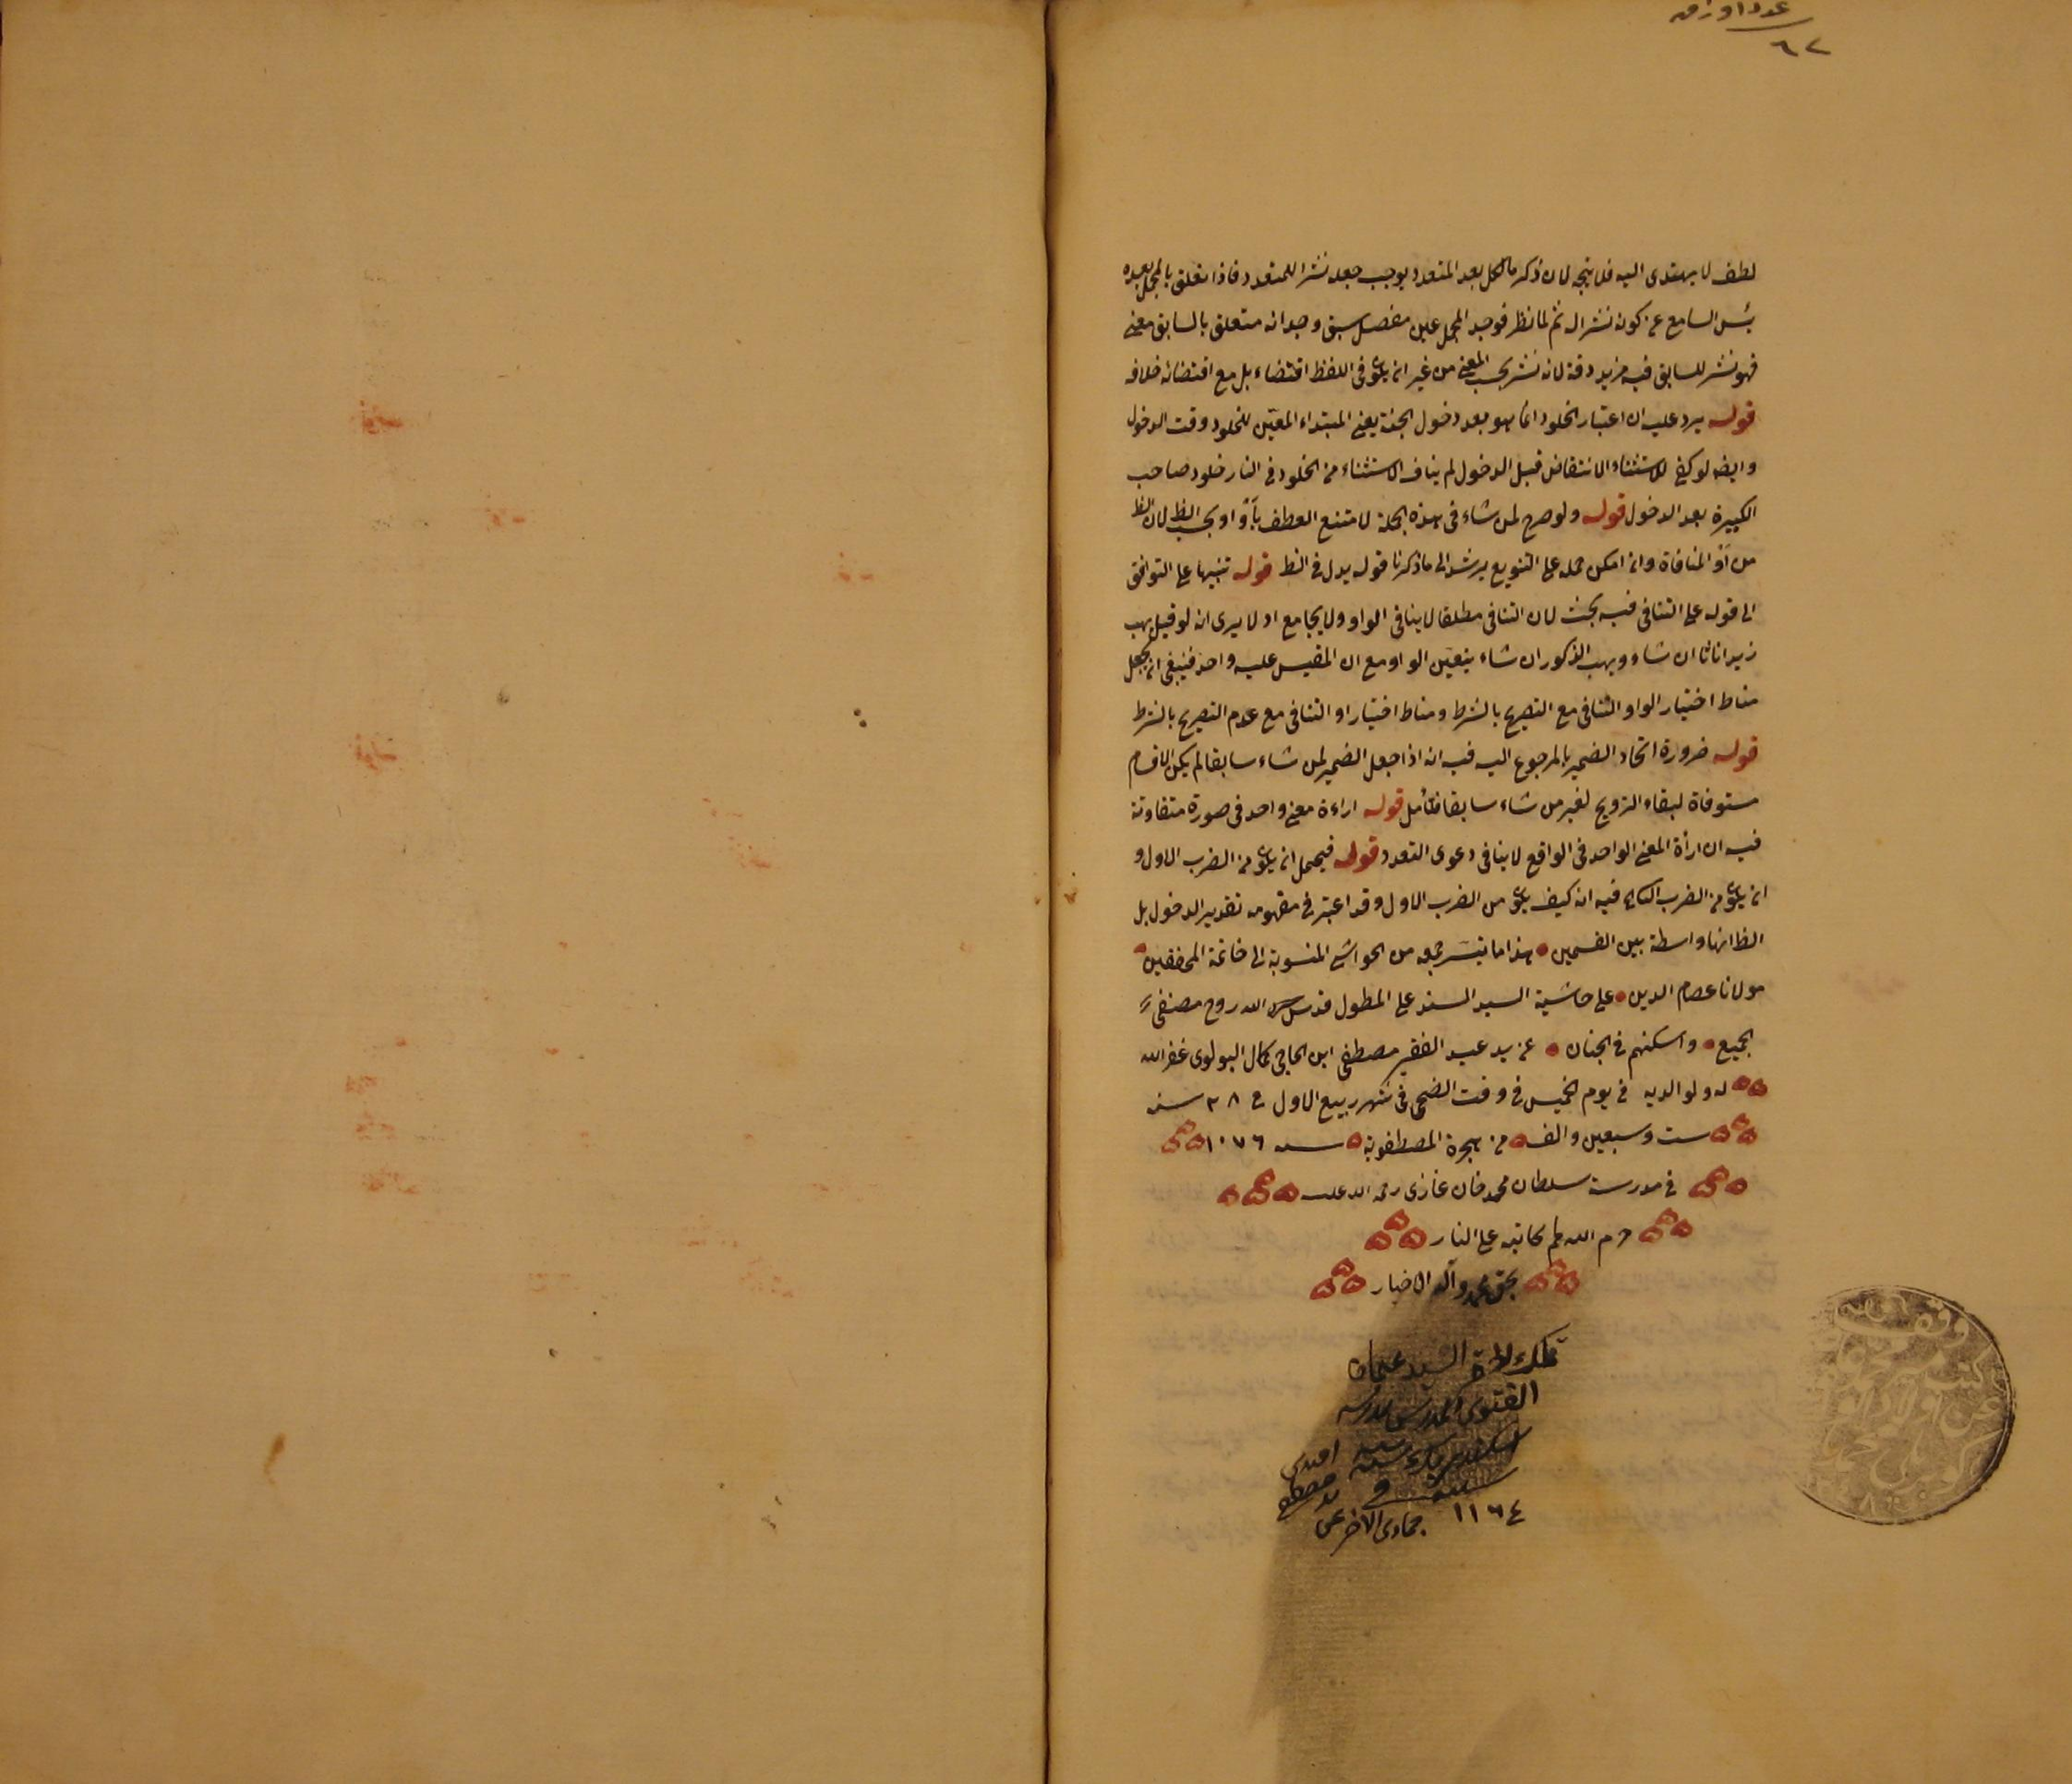 عدد اوراق
٦٢
لطف لا يهتدى اليه فلا يتجه لان ذكر ما لكل بعد المتعدد يوجب جعله نشرا للمتعدد فاذا تعلق بالمجمل بعده
يئس السامع عن كونه نشرا له ثم لما نظر فوجد المجمل عين مفصل سبق وجد انه متعلق بالسابق معنى
فهو نشر للسابق فيه مزيد دقة لانه نشر بحسب المعنى من غير ان يكون فى اللفظ اقتضاء بل مع اقتضائه خلافه
قوله يرد عليه ان اعتبار الخلود انما هو بعد دخول الجنة يعنى المبتداء المعيّن للخلود وقت الدخول
وايضا لو كفى للاستثناء الانتقاض قبل الدخول لم يناف الاستثناء من الخلود فى النار خلود صاحب
الكبيرة بعد الدخول قوله ولو صرح لمن شاء فى هذه الجملة لامتنع العطف بأو او بحسب الظ لان الظ
من أو المنافاة وان امكن حمله على التنويع يرشد الى ما ذكرنا قوله يدل فى الظ قوله تنبيها على التوافق
الى قوله على التنافى فيه بحث لان التنافى مطلقا لا ينافى الواو ولا يجامع او لا يرى انه لو قيل يهب
زيد اناثا ان شاء ويهب الذكور ان شاء يتعيّن الواو مع ان المقيس عليه واحد فينبغى ان يجعل
مناط اختيار الواو التنافى مع التصريح بالشرط ومناط اختيار او التنافى مع عدم التصريح بالشرط
قوله ضرورة اتحاد الضمير بالمرجوع اليه فيه انه اذا جعل الضمير لمن شاء سابقا لم يكن الاقسام
مستوفاة لبقاء التزويج لغير من شاء سابقا فتأمل قوله اراءة معنى واحد فى صورة متفاوتة
فيه ان ارأة المعنى الواحد فى الواقع لا ينافى دعوى التعدد قوله فيحمل ان يكون من الضرب الاول و
ان يكون من الضرب الثانى فيه انه كيف يكون من الضرب الاول وقد اعتبر فى مفهومه تقدير الدخول بل
الظ انها واسطة بين القسمين هذا ما تيسّر جمعه من الحواشى المنسوبة الى خاتمة المحققين
مولانا عصام الدين على حاشية السيد السند على المطول قدس الله روح مصنفى
الجميع واسكنهم فى الجنان عن يد عبد الفقير مصطفى ابن الحاجى كمال البولوى غفر الله
له ولوالديه فى يوم الخميس فى وقت الضحى فى شهر ربيع الاول فى ٢٨ سنه
ست وسبعين والف من هجرة المصطفوية سنه ١٠٧٦
فى مدرسة سلطان محمد خان غازى رحمة الله عليه
حرم الله كاتبه على النار
بحق محمد وآله الاخيار
السيد عثمان
المدرس بمدرسه
افندى
فى
١١٦٤ جمادى الاخر
وقف